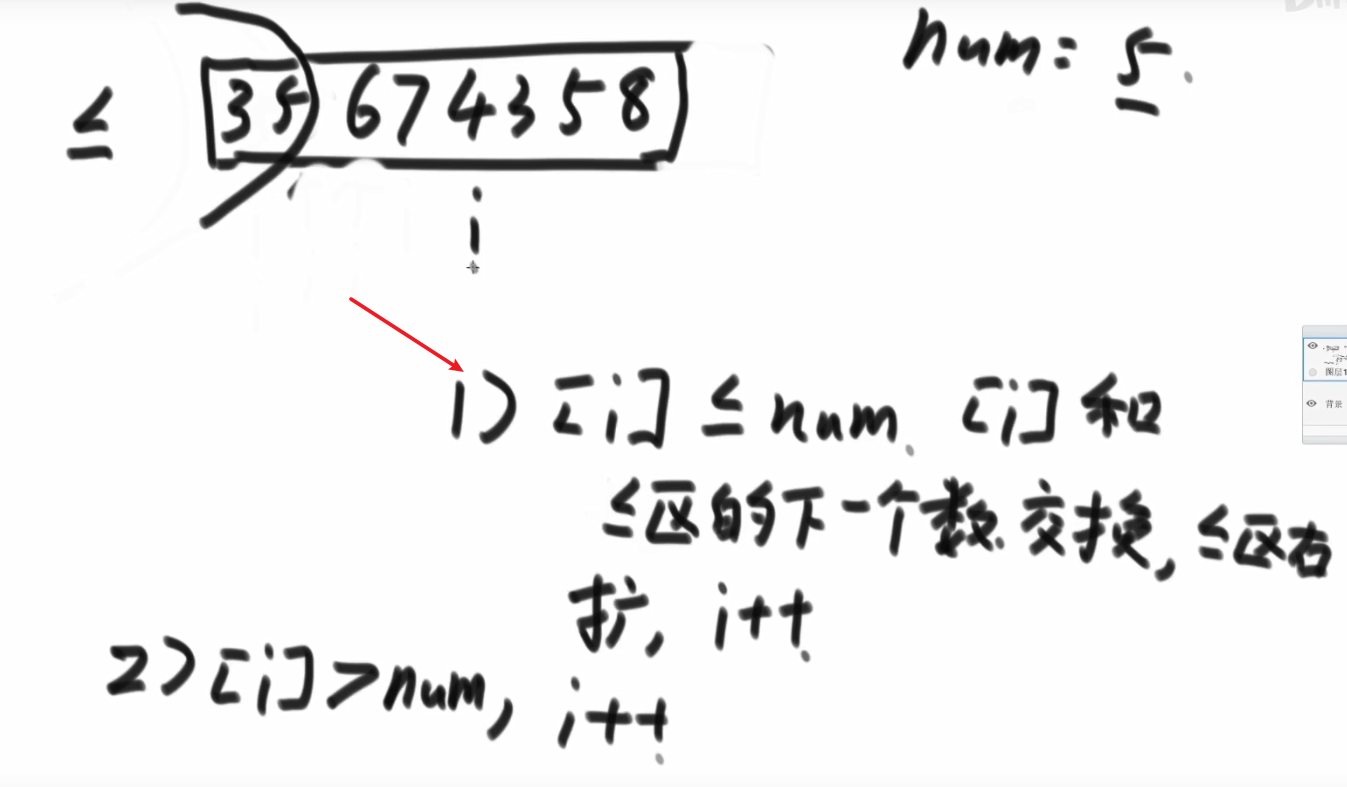 num = 5.
≤ 3 5 6 7 4 3 5 8
i
1) [i] ≤ num. [i] 和
≤区的下一个数交换, ≤区右
扩, i++.
2) [i] > num, i++.
图层1
背景